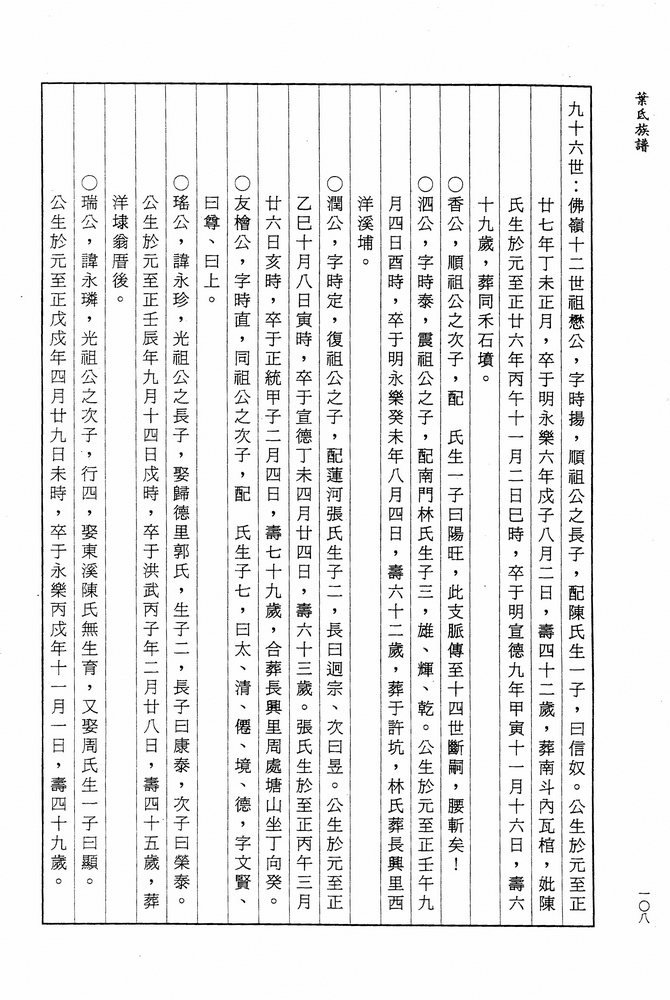 葉氏族譜
九十六世：佛嶺十二世祖懋公，字時揚，順祖公之長子，配陳氏生一子，曰信奴。公生於元至正
廿七年丁未正月，卒于明永樂六年戊子八月二日，壽四十二歲，葬南斗內瓦棺，妣陳
氏生於元至正廿六年丙午十一月二日巳時，卒于明宣德九年甲寅十一月十六日，壽六
十九歲，葬同禾石墳。
○香公，順祖公之次子，配　氏生一子曰陽旺，此支脈傳至十四世斷嗣，腰斬矣！
○泗公，字時泰，震祖公之子，配南門林氏生子三，雄、輝、乾。公生於元至正壬午九
月四日酉時，卒于明永樂癸未年八月四日，壽六十二歲，葬于許坑，林氏葬長興里西
洋溪埔。
○潤公，字時定，復祖公之子，配蓮河張氏生子二，長曰迥宗、次曰昱。公生於元至正
乙巳十月八日寅時，卒于宣德丁未四月廿四日，壽六十三歲。張氏生於至正丙午三月
廿六日亥時，卒于正統甲子二月四日，壽七十九歲，合葬長興里周處塘山坐丁向癸。
○友檜公，字時直，同祖公之次子，配　氏生子七，曰太、清、僊、境、德，字文賢、
曰尊、曰上。
○瑤公，諱永珍，光祖公之長子，娶歸德里郭氏，生子二，長子曰康泰，次子曰榮泰。
公生於元至正壬辰年九月十四日戌時，卒于洪武丙子年二月廿八日，壽四十五歲，葬
洋埭翁厝後。
○瑞公，諱永璘，光祖公之次子，行四，娶東溪陳氏無生育，又娶周氏生一子曰顯。
公生於元至正戊戌年四月廿九日未時，卒于永樂丙戌年十一月一日，壽四十九歲。
一○八